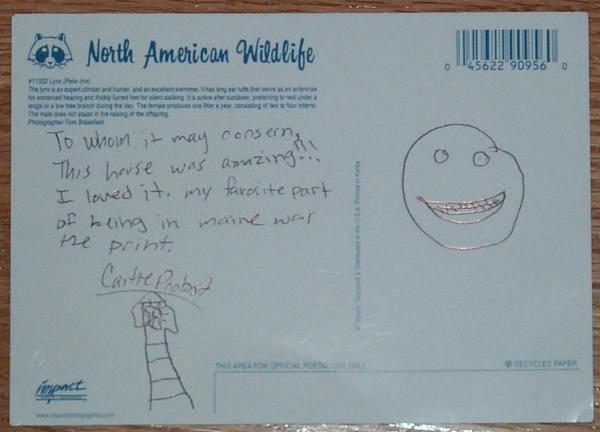 North American Wildlife
#11322 Lynx (Felis lnx)
The lynx is an expert climber and hunter, and an excellent swimmer. It has long ear tufts that serve as an antennae
for enhanced hearing and thickly furred feet for silent stalking. It is active after sundown, preferring to rest under a
ledge or a low tree branch during the day. The female produces one litter a year, consisting of two to four kittens.
The male does not assist in the raising of the offspring.
Photographer-Tom Brakefield
0 45622 90956 0
To whom it may consern,
This house was amazing!!!
I loved it. my favosite part
of being in maine was
the point.
Caitie Probst
Designed & Distributed in the U.S.A. Printed in Korea
THIS AREA FOR OFFICIAL POSTAL USE ONLY
RECYCLED PAPER
impact
www.impactphotographics.com